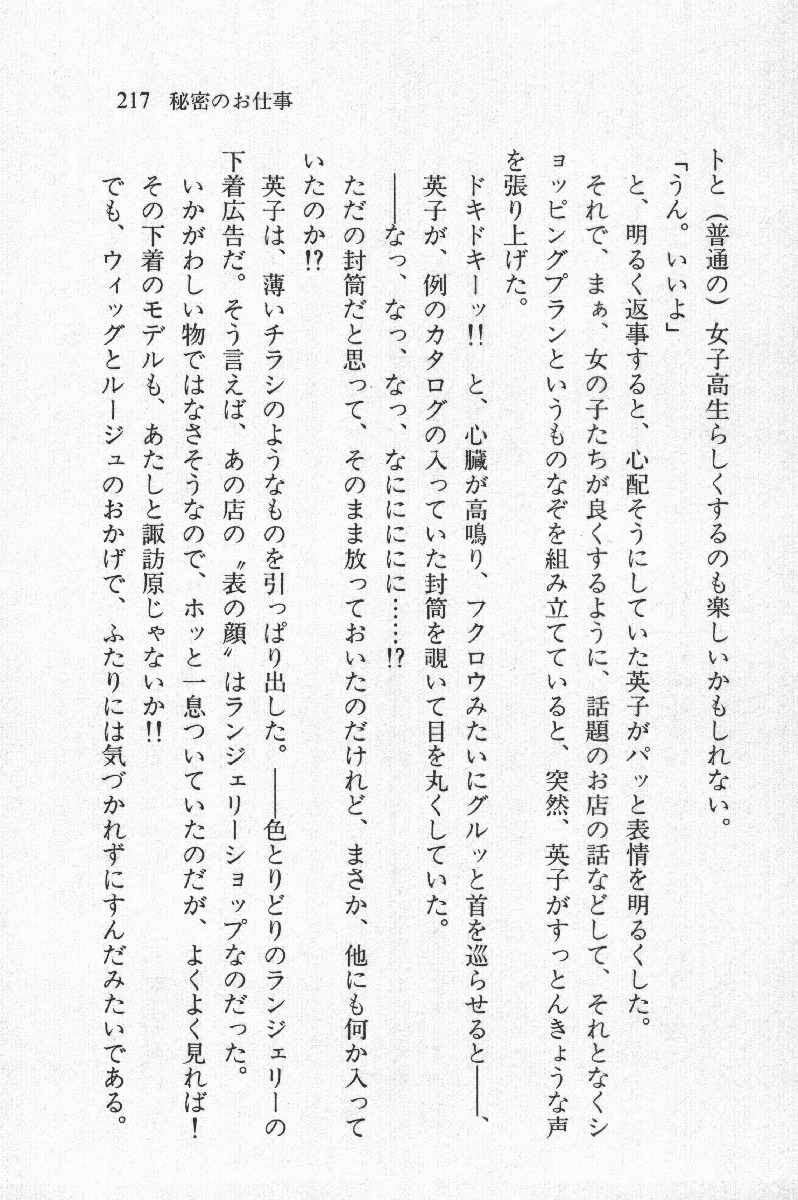 217 秘密のお仕事
トと（普通の）女子高生らしくするのも楽しいかもしれない。
「うん。いいよ」
と、明るく返事すると、心配そうにしていた英子がパッと表情を明るくした。
それで、まぁ、女の子たちが良くするように、話題のお店の話などして、それとなくシ
ョッピングプランというものなぞを組み立てていると、突然、英子がすっとんきょうな声
を張り上げた。
ドキドキーッ!! と、心臓が高鳴り、フクロウみたいにグルッと首を巡らせると――、
英子が、例のカタログの入っていた封筒を覗いて目を丸くしていた。
――なっ、なっ、なっ、なにににに……!?
ただの封筒だと思って、そのまま放っておいたのだけれど、まさか、他にも何か入って
いたのか!?
英子は、薄いチラシのようなものを引っぱり出した。――色とりどりのランジェリーの
下着広告だ。そう言えば、あの店の〝表の顔〟はランジェリーショップなのだった。
いかがわしい物ではなさそうなので、ホッと一息ついていたのだが、よくよく見れば！
その下着のモデルも、あたしと諏訪原じゃないか!!
でも、ウィッグとルージュのおかげで、ふたりには気づかれずにすんだみたいである。